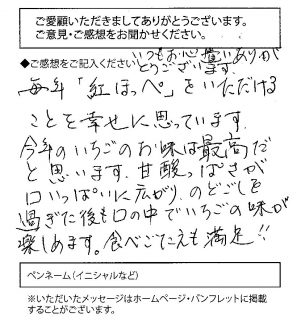 ご愛顧いただきましてありがとうございます。
ご意見・ご感想をお聞かせください。
◆ご感想をご記入ください
いつもお心遣いありが
とうございます.
毎年「紅ほっぺ」をいただける
ことを幸せに思っています.
今年のいちごのお味は最高だ
と思います. 甘酸っぱさが
口いっぱいに広がり. のどごしを
過ぎた後も口の中でいちごの味が
楽しめます。食べごたえも満足!!
ペンネーム(イニシャルなど)
※いただいたメッセージはホームページ・パンフレットに掲載
することがございます。